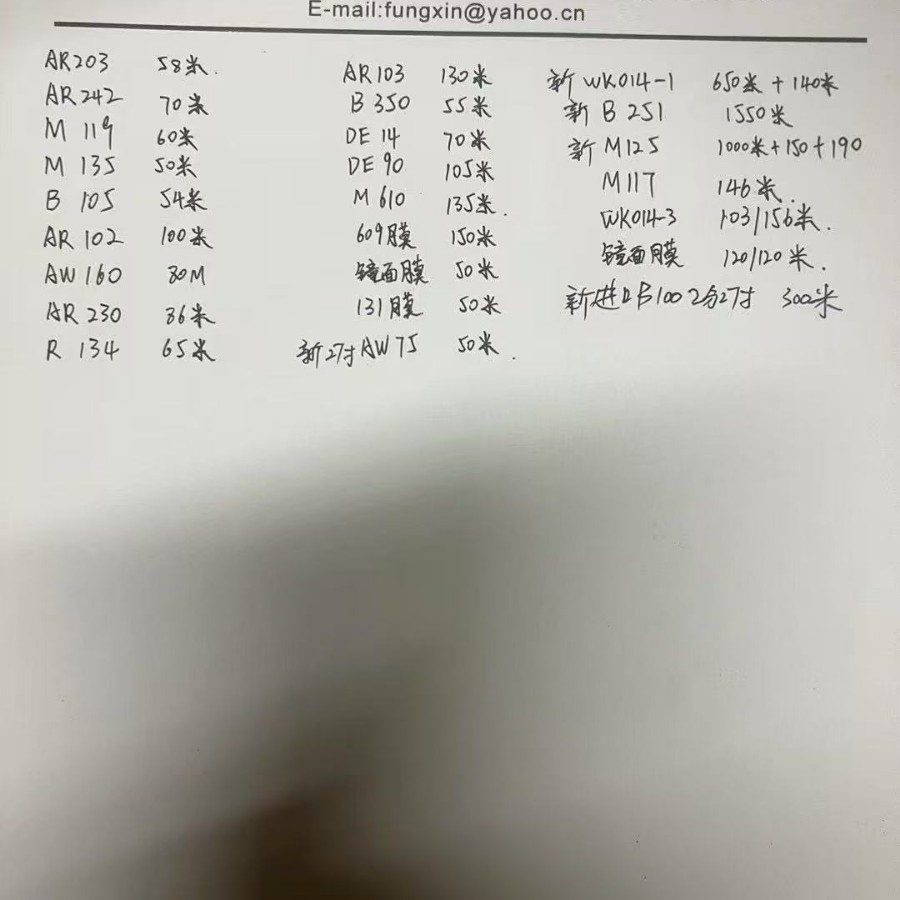 E-mail:fungxin@yahoo.cn
AR203 58米.
AR242 70米
M 119 60米
M 135 50米
B 105 54米
AR 102 100米
AW 160 80M
AR 230 86米
R 134 65米
AR 103 130米
B 350 55米
DE 14 70米
DE 90 105米
M 610 135米.
609膜 150米
镜面膜 50米
131膜 50米
新27寸AW 75 50米.
新 WK014-1 650米+140米
新 B 251 1550米
新 M125 1000米+150+190
M117 146米.
WK014-3 103/156米.
镜面膜 120/120米.
新进 100 2分27寸 300米